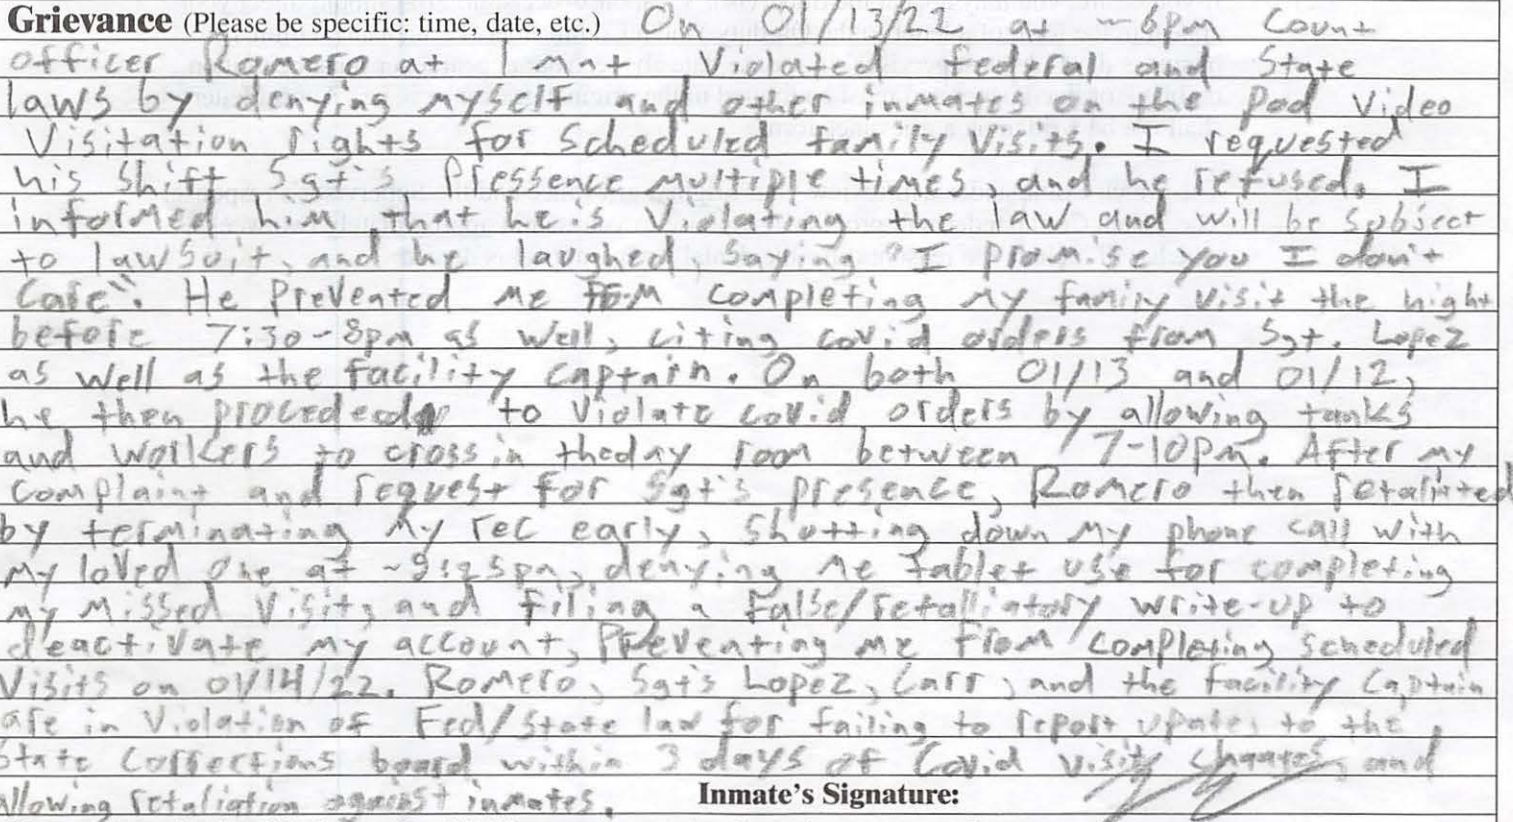 Grievance (Please be specific: time, date, etc.) On 01/13/22 at ~6pm Count
officer Romero at Violated federal and State
laws by denying myself and other inmates on the pod Video
Visitation rights for scheduled family visits. I requested
his shift Sgt's Pressence multiple times, and he refused. I
informed him that he is violating the law and will be subject
to lawsuit, and he laughed, saying "I promise you I don't
Care". He Prevented me from completing my family visit the night
before 7:30-8pm as well, citing covid orders from Sgt. Lopez
as well as the facility Captain. On both 01/13 and 01/12,
he then proceded to violate covid orders by allowing tanks
and workers to cross in the day room between 7-10pm. After my
Complaint and request for Sgt's presence, Romero then retaliated
by terminating my rec early, shutting down my phone call with
my loved one at ~9:25pm, denying me tablet use for completing
my missed visit, and filing a false/retalliatory write-up to
deactivate my account, Preventing me from completing scheduled
Visits on 01/14/22. Romero, Sgts Lopez, Carr, and the facility Captain
are in violation of Fed/State law for failing to report upates to the
State Corrections board within 3 days of Covid visit changes and
allowing retaliation against inmates. Inmate's Signature: